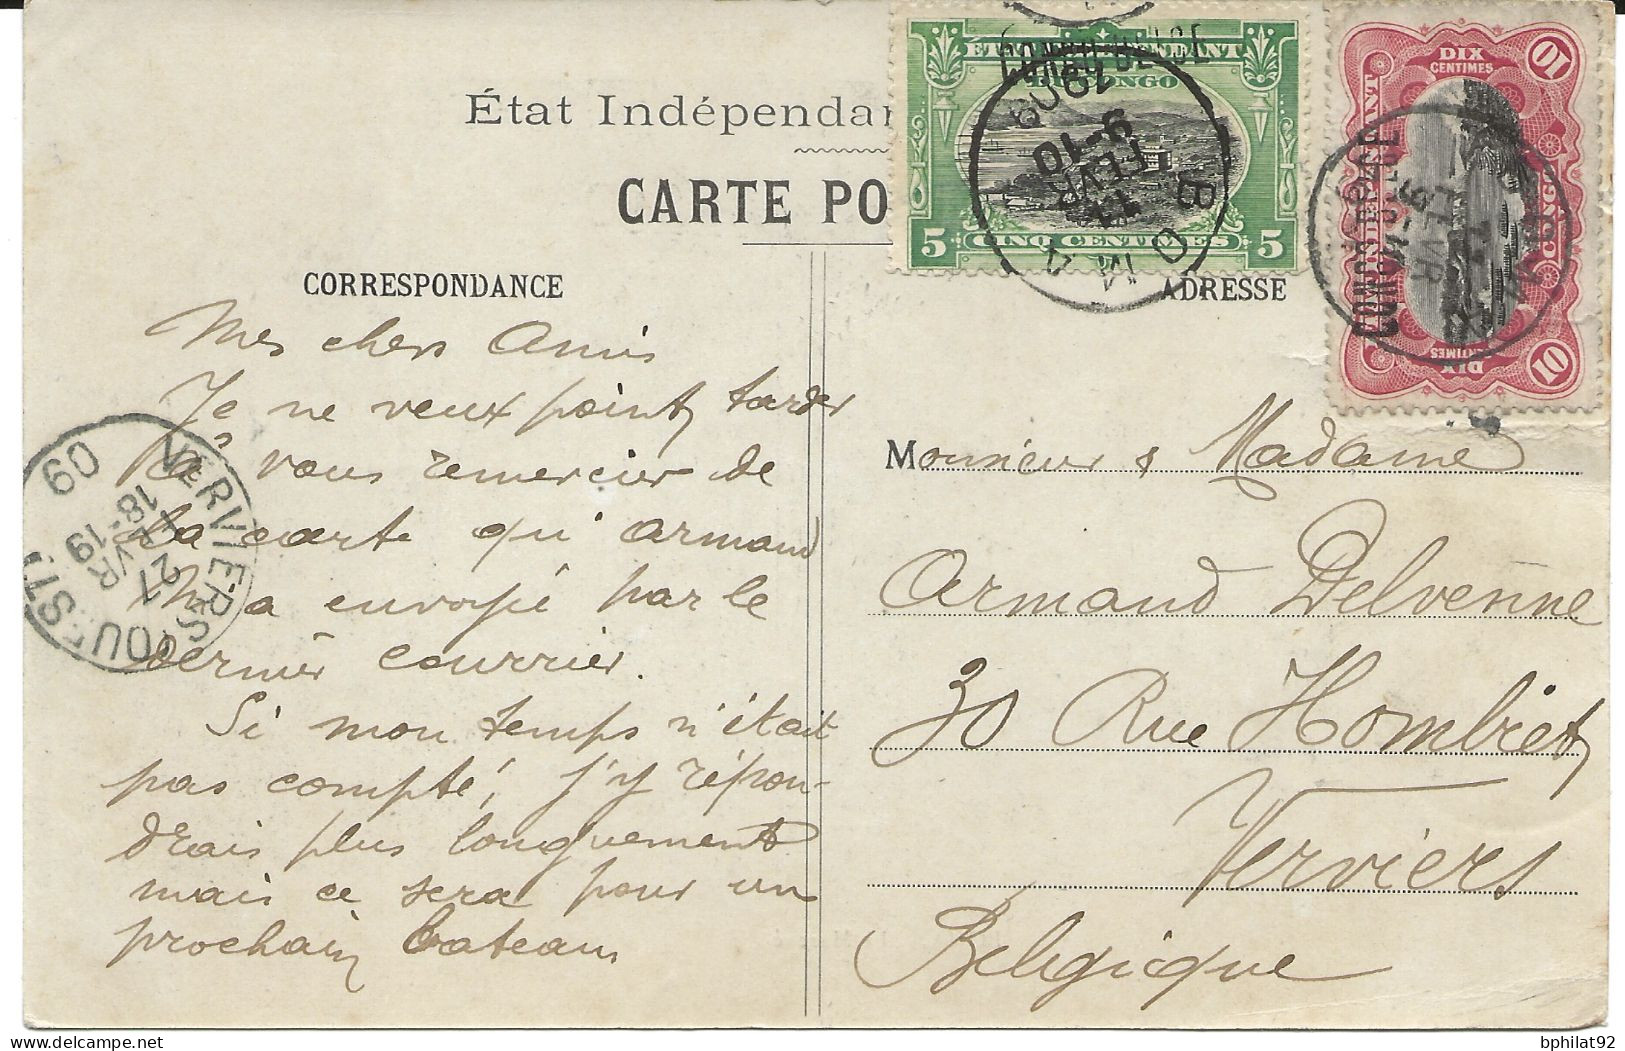 État Indépendan
CARTE PO
CORRESPONDANCE
ADRESSE
ÉTAT INDÉPENDANT
DU CONGO
CONGO BELGE
5 CINQ CENTIMES 5
BOMA
11
FEVR
9-10
1909
10 DIX CENTIMES 10
CONGO BELGE
Mes chers Amis
Je ne veux point tarder
à vous remercier de
la carte qu'Armand
m'a envoyé par le
dernier courrier.
Si mon temps n'était
pas compté, j'y répon-
drais plus longuement
mais ce sera pour un
prochain bateau
VERVIERS OUEST
27
FEVR
18-19
09
Monsieur & Madame
Armand Delvenne
30 Rue Hombiet
Verviers
Belgique
bphilat92